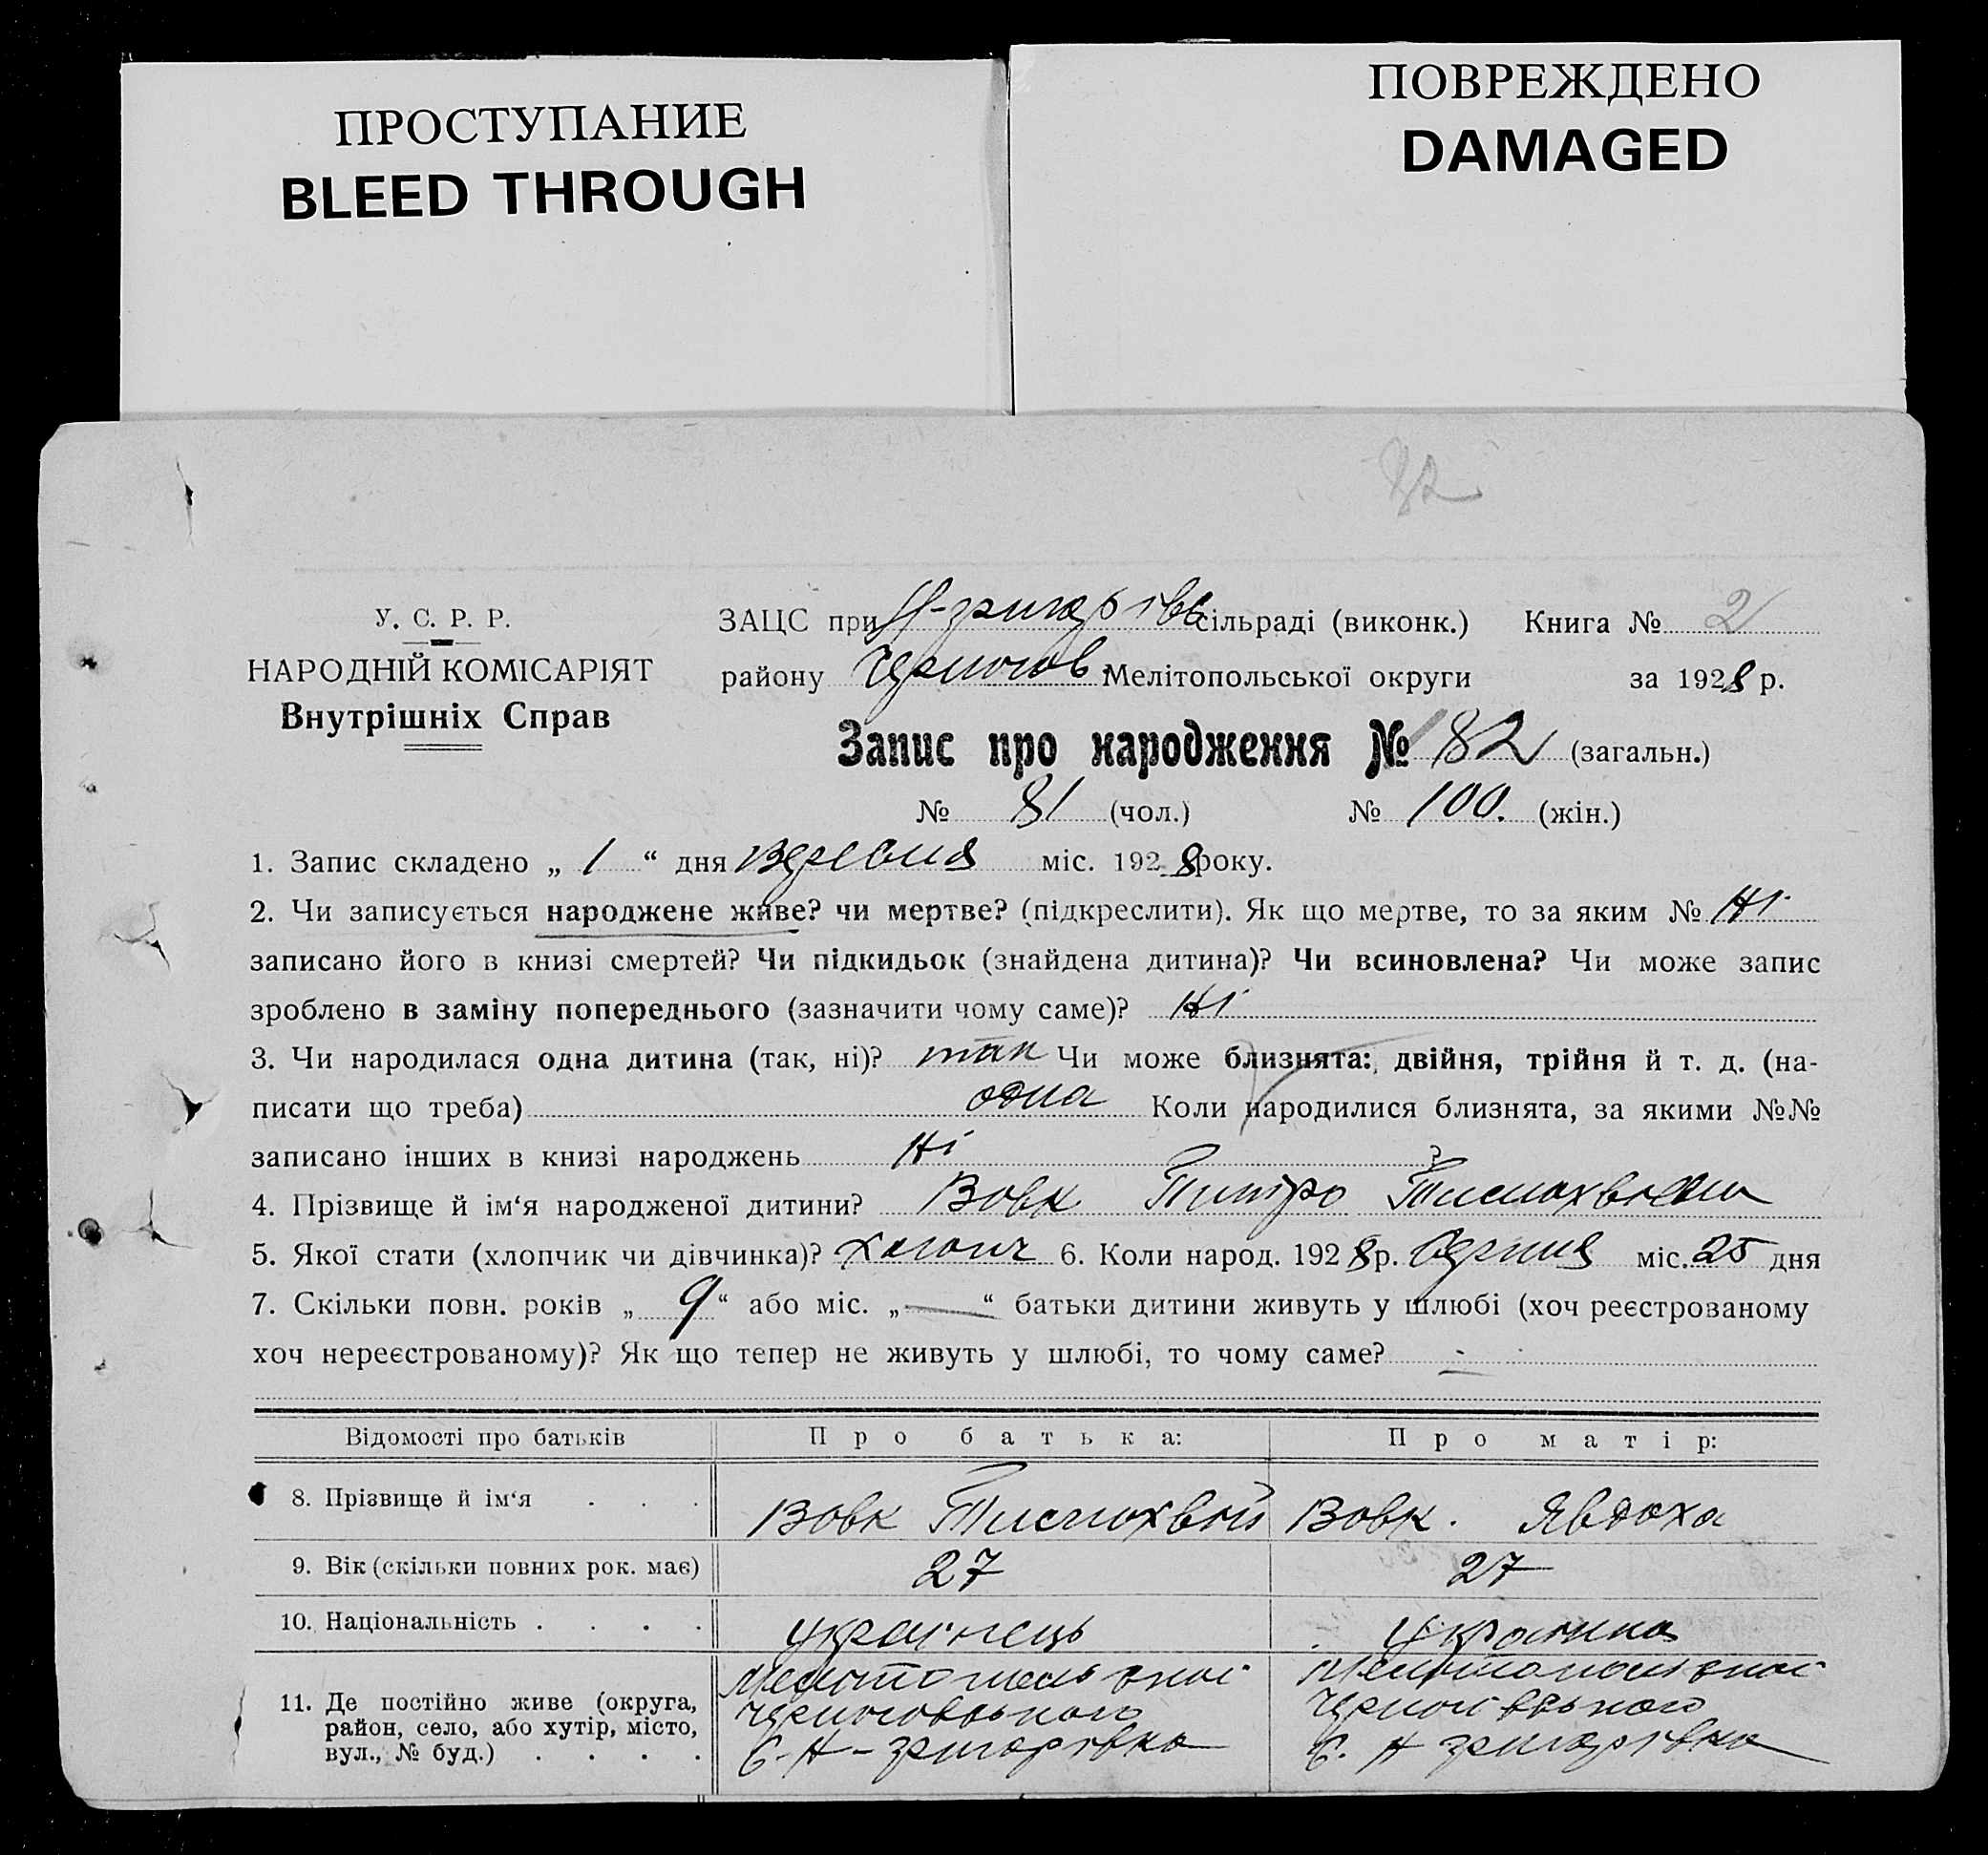 ПРОСТУПАНИЕ
BLEED THROUGH
ПОВРЕЖДЕНО
DAMAGED
82
У. С. Р. Р.
НАРОДНІЙ КОМІСАРІЯТ
Внутрішніх Справ
ЗАЦС при Н-григорівс сільраді (виконк.) Книга № 2
району Чернигов Мелітопольської округи за 1928 р.
Запис про народження № 182 (загальн.)
№ 81 (чол.) № 100. (жін.)
1. Запис складено „ 1 “ дня вересня міс. 1928 року.
2. Чи записується народжене живе? чи мертве? (підкреслити). Як що мертве, то за яким № Ні
записано його в книзі смертей? Чи підкидьок (знайдена дитина)? Чи всиновлена? Чи може запис
зроблено в заміну попереднього (зазначити чому саме)? Ні
3. Чи народилася одна дитина (так, ні)? так Чи може близнята: двійня, трійня й т. д. (на-
писати що треба) одна Коли народилися близнята, за якими №№
записано інших в книзі народжень Ні
4. Прізвище й ім‘я народженої дитини? Вовк
5. Якої стати (хлопчик чи дівчинка)? 6. Коли народ. 1928 р. Серпня міс. 25 дня
7. Скільки повн. років „ 9 “ або міс. „ — “ батьки дитини живуть у шлюбі (хоч реєстрованому
хоч нереєстрованому)? Як що тепер не живуть у шлюбі, то чому саме? -
Відомості про батьків Про батька: Про матір:
8. Прізвище й ім‘я . . . Вовк Тисмохвій Вовк. Явдоха
9. Вік (скільки повних рок. має) 27 27
10. Національність . . . . українець українка
11. Де постійно живе (округа, Мелітопольскої Мелітопольскої
район, село, або хутір, місто, Черниговського
вул., № буд.) . . . . С. Н-григорівка С. Н григорівка